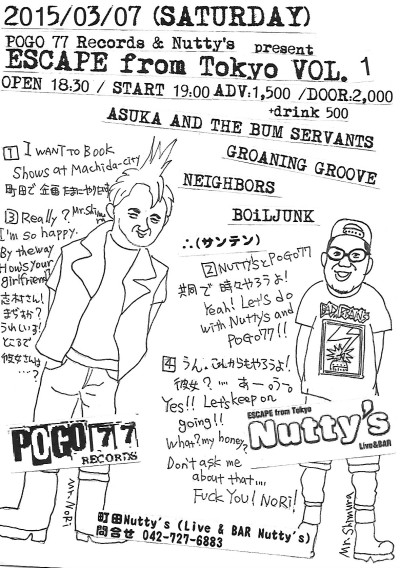 2015/03/07 (SATURDAY)
POGO 77 Records & Nutty's present
ESCAPE from Tokyo VOL. 1
OPEN 18:30 / START 19:00 ADV:1,500 /DOOR:2,000
+drink 500
ASUKA AND THE BUM SERVANTS
GROANING GROOVE
NEIGHBORS
BOILJUNK
∴(サンテン)
1 I WANT to Book
Shows at Machida-city
町田で企画たまにやりたい
3 Really? Mr.Shimura
I'm so happy.
By the way
How's your
girlfriend?
志村さん!
まぢすか?
うれしいす!
ところで
彼女さんは
...?
2 Nutty'sとPoGo77
共同で時々やろうよ!
Yeah! Let's do
with Nutty's and
PoGo77!!
4 うん。これからもやろうよ!
彼女?...あーっうー。
Yes!! Let's keep on
going!!
What? my honey?
Don't ask me
about that...
FUCK YOU! NORi!
POGO 77
RECORDS
ESCAPE from Tokyo
Nutty's
Live&BAR
Mr. NORi
Mr. Shimura
町田Nutty's (Live & BAR Nutty's)
問合せ 042-727-6883